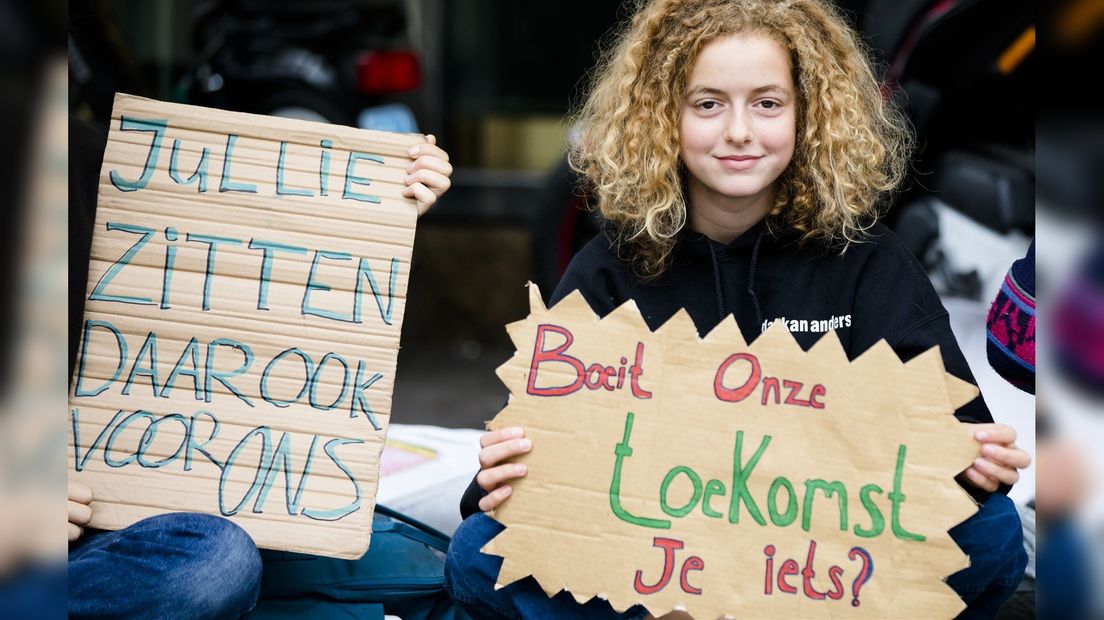 JuLLiE
ZiTTEN
DAAROOK
VOOR ONS
dat kan anders
Boeit Onze
toeKomst
Je iets?